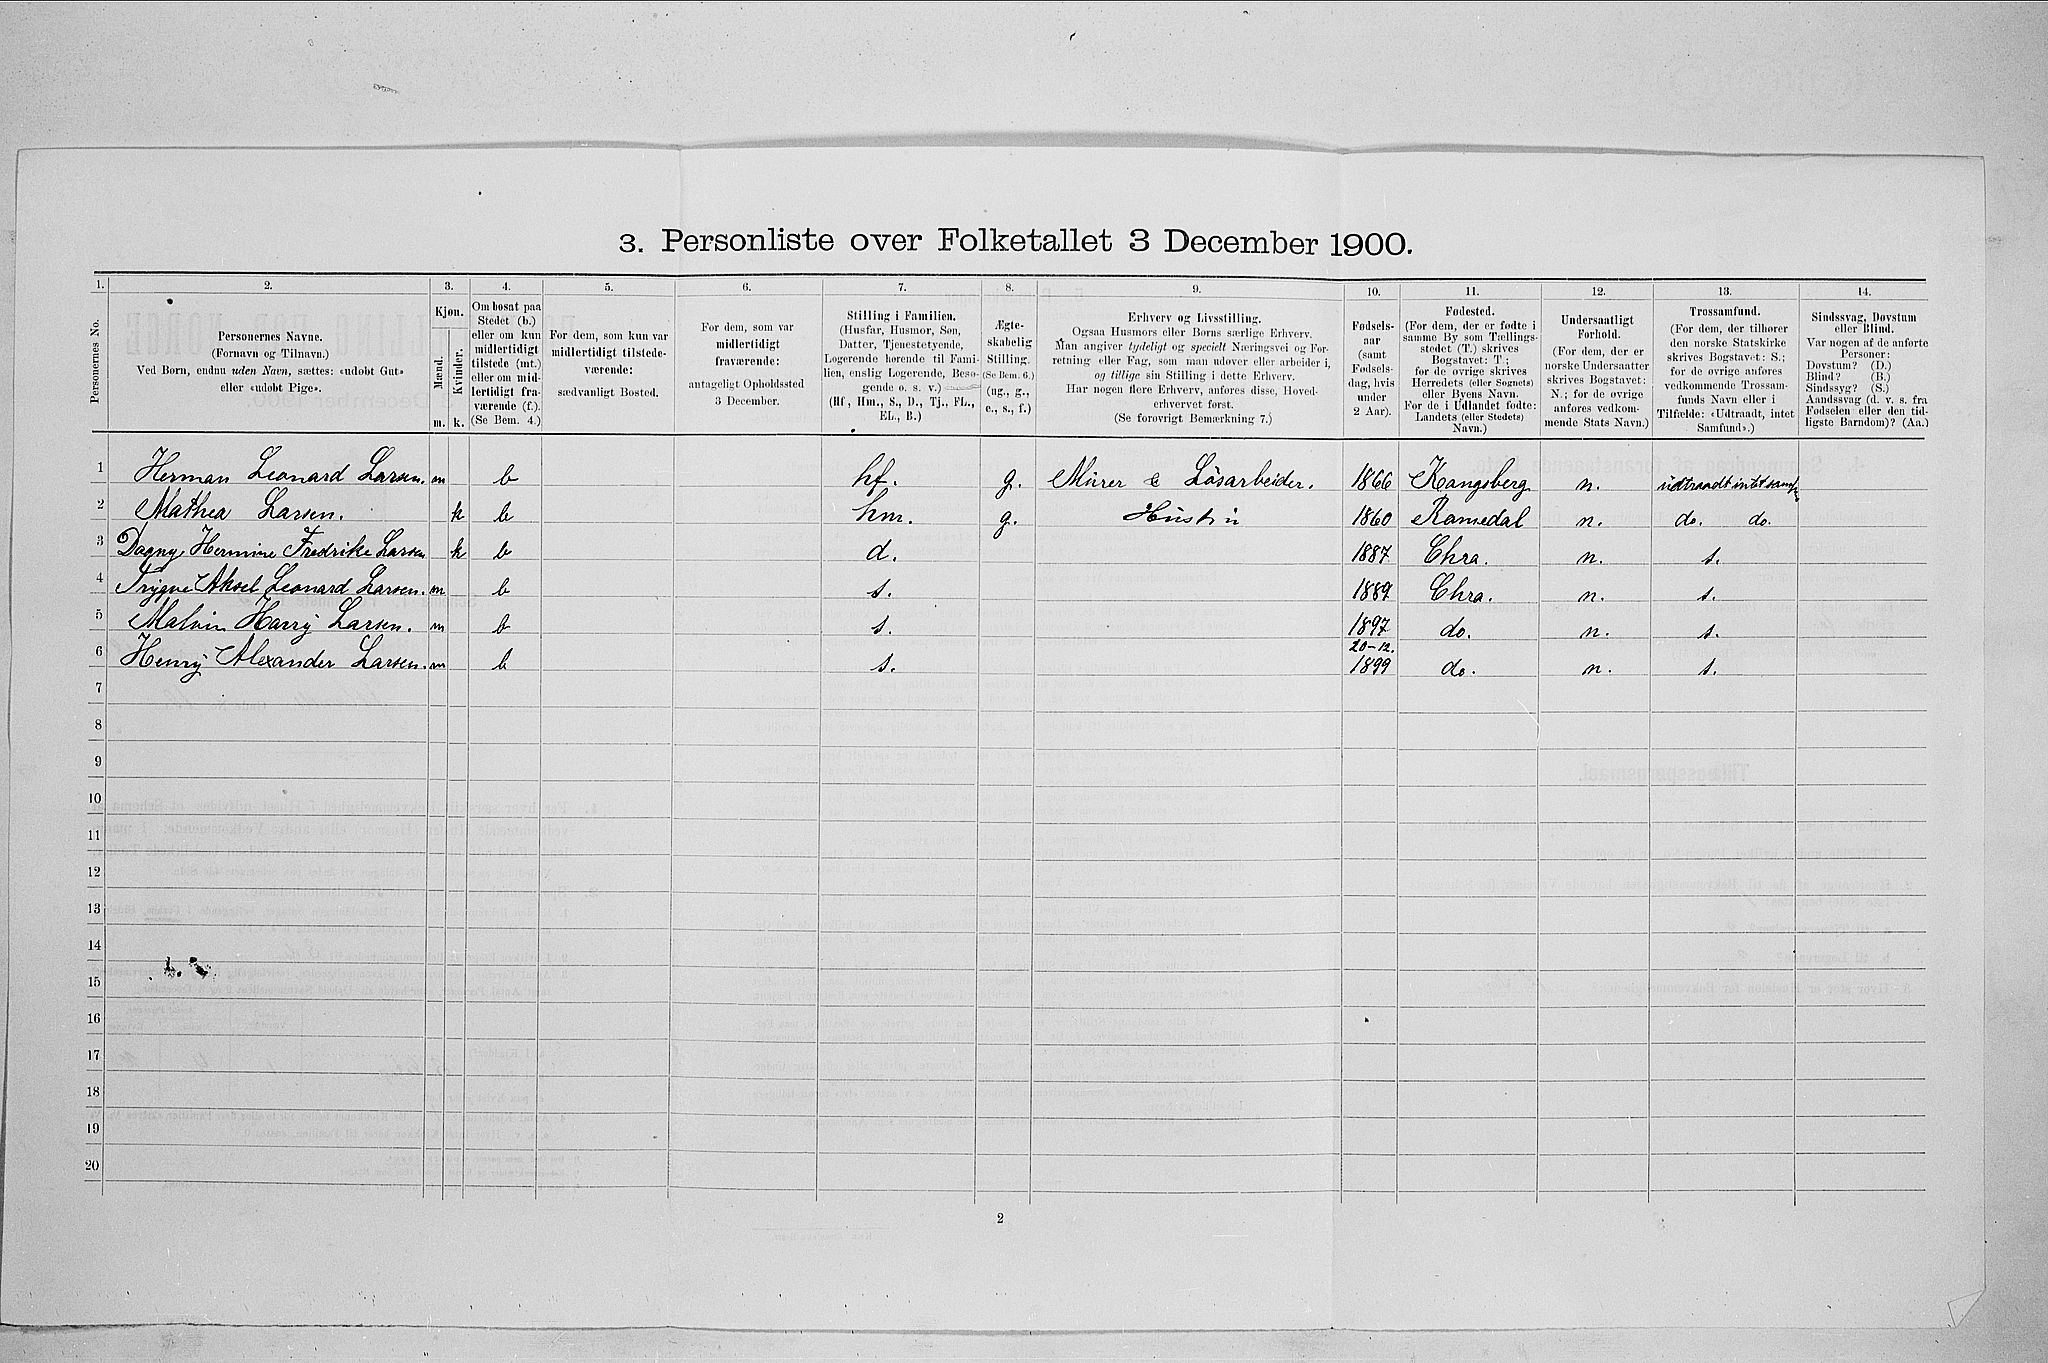 3. Personliste over Folketallet 3 December 1900.
1. 2. 3. 4. 5. 6. 7. 8. 9. 10. 11. 12. 13. 14.
Personernes No.
Personernes Navne.
(Fornavn og Tilnavn.)
Ved Børn, endnu uden Navn, sættes: «udobt Gut»
eller «udobt Pige».
Kjøn.
Mænd.
Kvinder.
m. k.
Om bosat paa
Stedet (b.)
eller om kun
midlertidigt
tilstede (mt.)
eller om mid-
lertidigt fra-
værende (f.)
(Se Bem. 4.)
For dem, som kun var
midlertidigt tilstede-
værende:
sædvanligt Bosted.
For dem, som var
midlertidigt
fraværende:
antageligt Opholdssted
3 December.
Stilling i Familien.
(Husfar, Husmor, Søn,
Datter, Tjenestetyende,
Logerende hørende til Fami-
lien, enslig Logerende, Besø-
gende o. s. v.)
(Hf, Hm., S., D., Tj., FL.,
EL., B.)
Ægte-
skabelig
Stilling.
(Se Bem. 6.)
(ug., g.,
e., s., f.)
Erhverv og Livsstilling.
Ogsaa Husmors eller Børns særlige Erhverv.
Man angiver tydeligt og specielt Næringsvei og For-
retning eller Fag, som man udøver eller arbeider i,
og tillige sin Stilling i dette Erhverv.
Har nogen flere Erhverv, anføres disse, Hoved-
erhvervet først.
(Se forøvrigt Bemærkning 7.)
Fødsels-
aar
(samt
Fødsels-
dag, hvis
under
2 Aar).
Fødested.
(For dem, der er fødte i
samme By som Tællings-
stedet (T.) skrives
Bogstavet: T.;
for de øvrige skrives
Herredets (eller Sognets)
eller Byens Navn.
For de i Udlandet fødte:
Landets (eller Stedets)
Navn.)
Undersaatligt
Forhold.
(For dem, der er
norske Undersaatter
skrives Bogstavet:
N.; for de øvrige
anføres vedkom-
mende Stats Navn.)
Trossamfund.
(For dem, der tilhører
den norske Statskirke
skrives Bogstavet: S.;
for de øvrige anføres
vedkommende Trossam-
funds Navn eller i
Tilfælde: «Udtraadt, intet
Samfund».)
Sindssvag, Døvstum
eller Blind.
Var nogen af de anførte
Personer:
Døvstum? (D.)
Blind? (B.)
Sindssyg? (S.)
Aandssvag (d. v. s. fra
Fødselen eller den tid-
ligste Barndom)? (Aa.)
1 Herman Leonard Larsen. m b hf. g. Mürer & Løsarbeider. 1866 Kongsberg n.
2 Mathea Larsen. k b hm. g. 1860 Romedal n. do. do.
3 Dagny Hermine Fredrike Larsen k b d. 1887 Chra. n. s.
4 Trygve Aksel Leonard Larsen. m b s. 1889 Chra. n. s.
5 Malvin Harry Larsen. m b s. 1897 do. n. s.
6 Henry Alexander Larsen. m b s. 20-12. 1899 do. n. s.
7
8
9
10
11
12
13
14
15
16
17
18
19
20
2